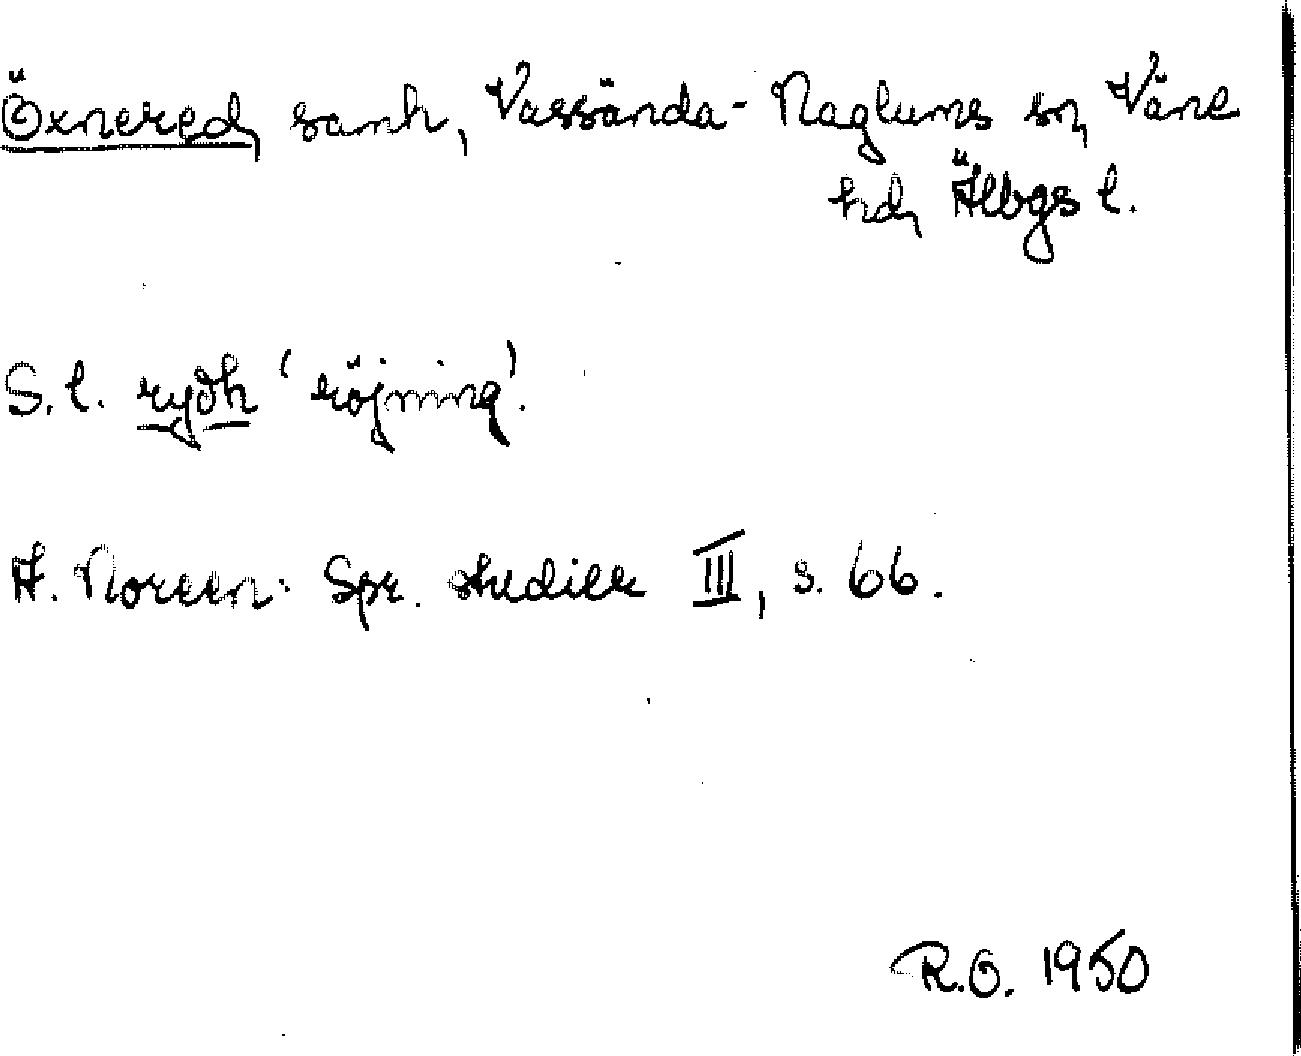 Öxnered, samh, Vassända-Naglums sn, Väne
hd, Älbgs l.
S.l. rydh 'röjning'.
A. Noreen: Spr. studier III, s. 66.
R.O. 1950